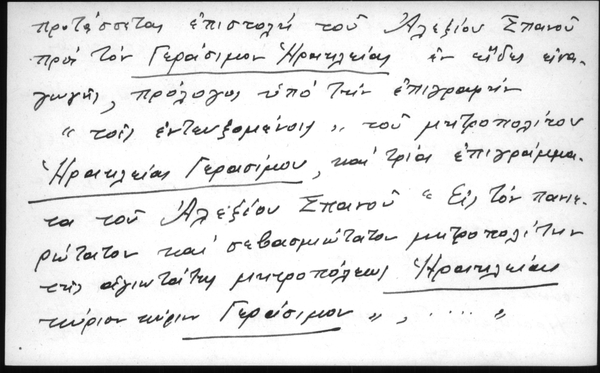 προτάσσεται ἐπιστολή τοῦ Ἀλεξίου Σπανοῦ
πρός τόν Γεράσιμον Ἡρακλείας ἐν εἴδει εἰσα-
γωγῆς, πρόλογος ὑπό τήν ἐπιγραφήν
“ τοῖς ἐντευξομένοις „ τοῦ μητροπολίτου
Ἡρακλείας Γερασίμου, καί τρία ἐπιγράμμα-
τα τοῦ Ἀλεξίου Σπανοῦ “ Εἰς τόν πανιε-
ρώτατον καί σεβασμιώτατον μητροπολίτην
τῆς ἁγιωτάτης μητροπόλεως Ἡρακλείας
κύριον κύριν Γεράσιμον „ , ..... „